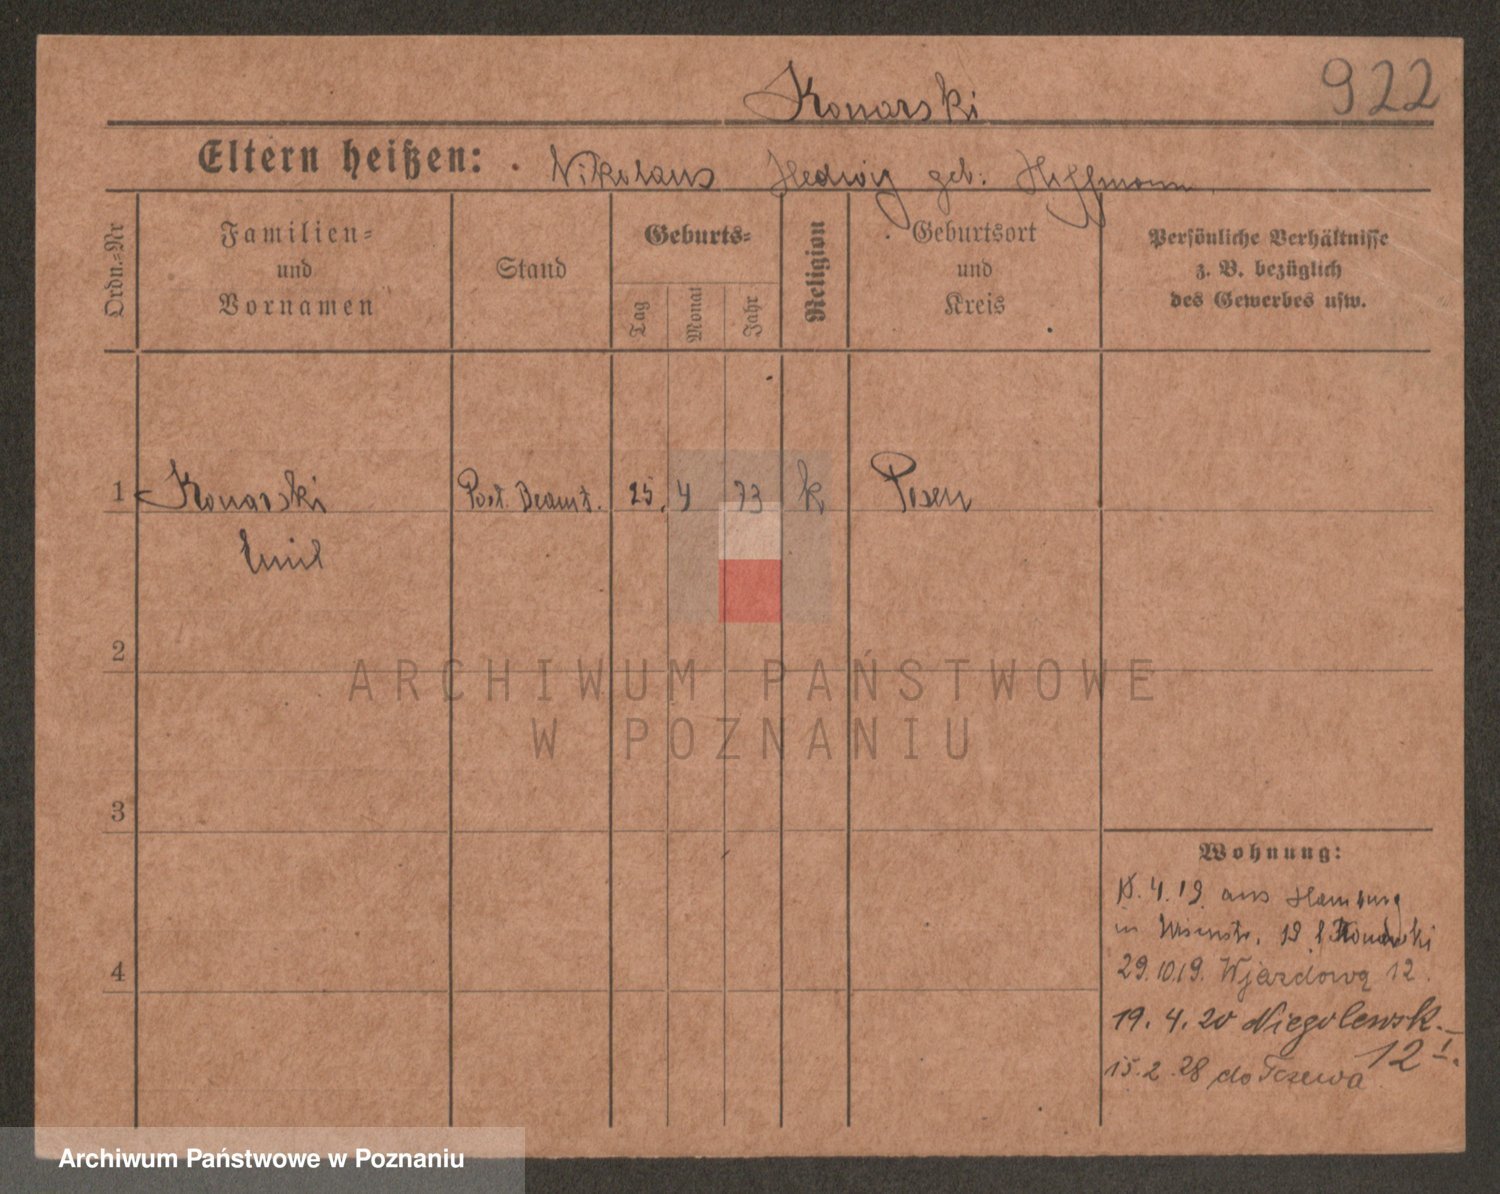 Konarski
922
Eltern heißen: Nikolaus Hedwig geb. Hoffmann
Ordn.-Nr
Familien-
und
Vornamen
Stand
Geburts-
Tag
Monat
Jahr
Religion
Geburtsort
und
Kreis
Persönliche Verhältnisse
z. B. bezüglich
des Gewerbes usw.
1 Konarski Post. Beamt. 25. 4 73 k Posen
Emil
2
3
4
Wohnung:
4. 19 aus Hamburg
in 19 Konarski
29.10.19. Wjazdową 12.
19. 4. 20 Niegolewsk.
12 I.
15. 2. 28 do Tczewa
ARCHIWUM PAŃSTWOWE
W POZNANIU
Archiwum Państwowe w Poznaniu